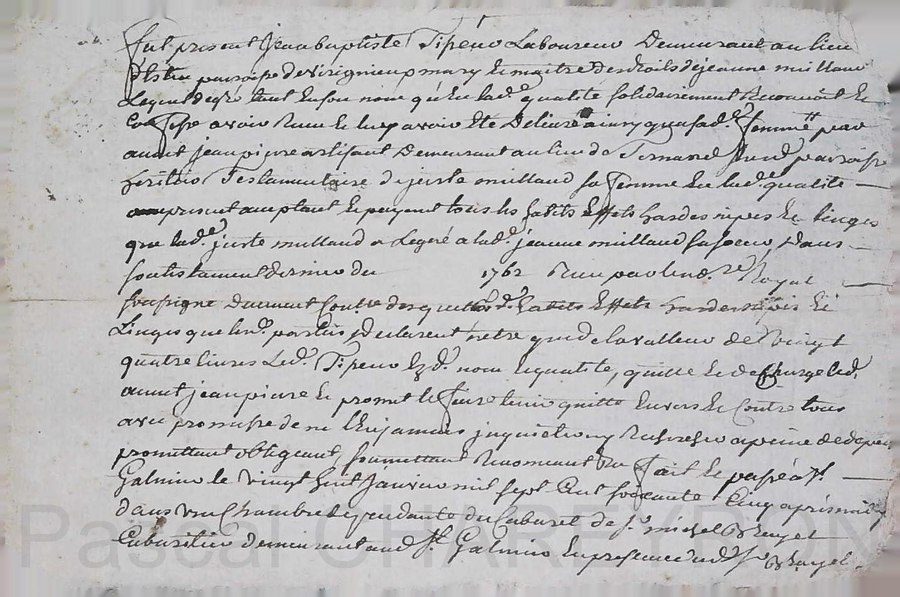 fut present Jean baptiste Tipeno Laboureur Demeurant au lieu
paroisse de Virignieu mary et maitre des droits de jeanne millaud
Lequel de gré tant en son nom qu'en lad.e qualité solidairement Reconnoit et
Confesse avoir Reçu et luy avoir eté Delivré a jusqu'a lad.e femme par
Jean pierre artisant Demeurant au lieu de paroisse
heritier Testamentaire de juste millaud sa femme en lad.e qualité
present acceptant et payant tous les habits Effets hardes nipes et linges
que lad.e juste millaud a Legué a lad.e jeanne millaud sa soeur Dans
son testament dernier du 1762 Reçu par led. Royal
soussigné Duement Con.lé desquels d. habits Effets hardes nipes et
Linges que les d. parties declarent n'etre que de la valleur de Vingt
quatre livres Led. Tipeno Ezd. nom et qualité, quitte et decharge led.
jean pierre et promet le faire tenir quitte Envers et Contre tous
avec promesse de ne l'En jamais inquietter ny Rechercher a peine de depens
promettant obligeant, soumettant Renonceant &c fait et passé a St.
Galmier le vingt huit janvier mil sept Cent soixante Cinq après midy
dans une Chambre dependante du Cabaret de S.r michel
Cabaretier demeurant aud. St. Galmier En presence dud. S.r
Pascal CHAREYRON